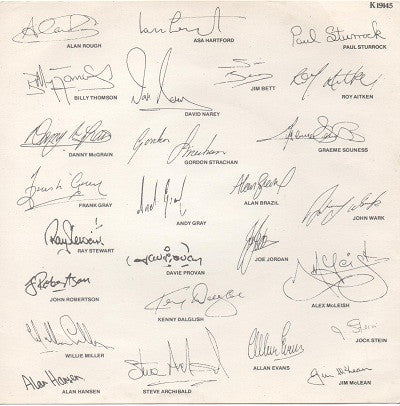 K 19145
Alan Rough
ALAN ROUGH
ASA HARTFORD
Paul Sturrock
PAUL STURROCK
Billy Thomson
BILLY THOMSON
DAVID NAREY
Jim Bett
JIM BETT
Roy Aitken
ROY AITKEN
Danny McGrain
DANNY McGRAIN
Gordon Strachan
GORDON STRACHAN
Graeme Souness
GRAEME SOUNESS
Frank Gray
FRANK GRAY
Andy Gray
ANDY GRAY
Alan Brazil
ALAN BRAZIL
John Wark
JOHN WARK
Ray Stewart
RAY STEWART
DAVIE PROVAN
JOE JORDAN
A McLeish
ALEX McLEISH
J Robertson
JOHN ROBERTSON
Kenny Dalglish
KENNY DALGLISH
J. Stein
JOCK STEIN
Willie Miller
WILLIE MILLER
Steve Archibald
STEVE ARCHIBALD
Allan Evans
ALLAN EVANS
Jim McLean
JIM McLEAN
Alan Hansen
ALAN HANSEN